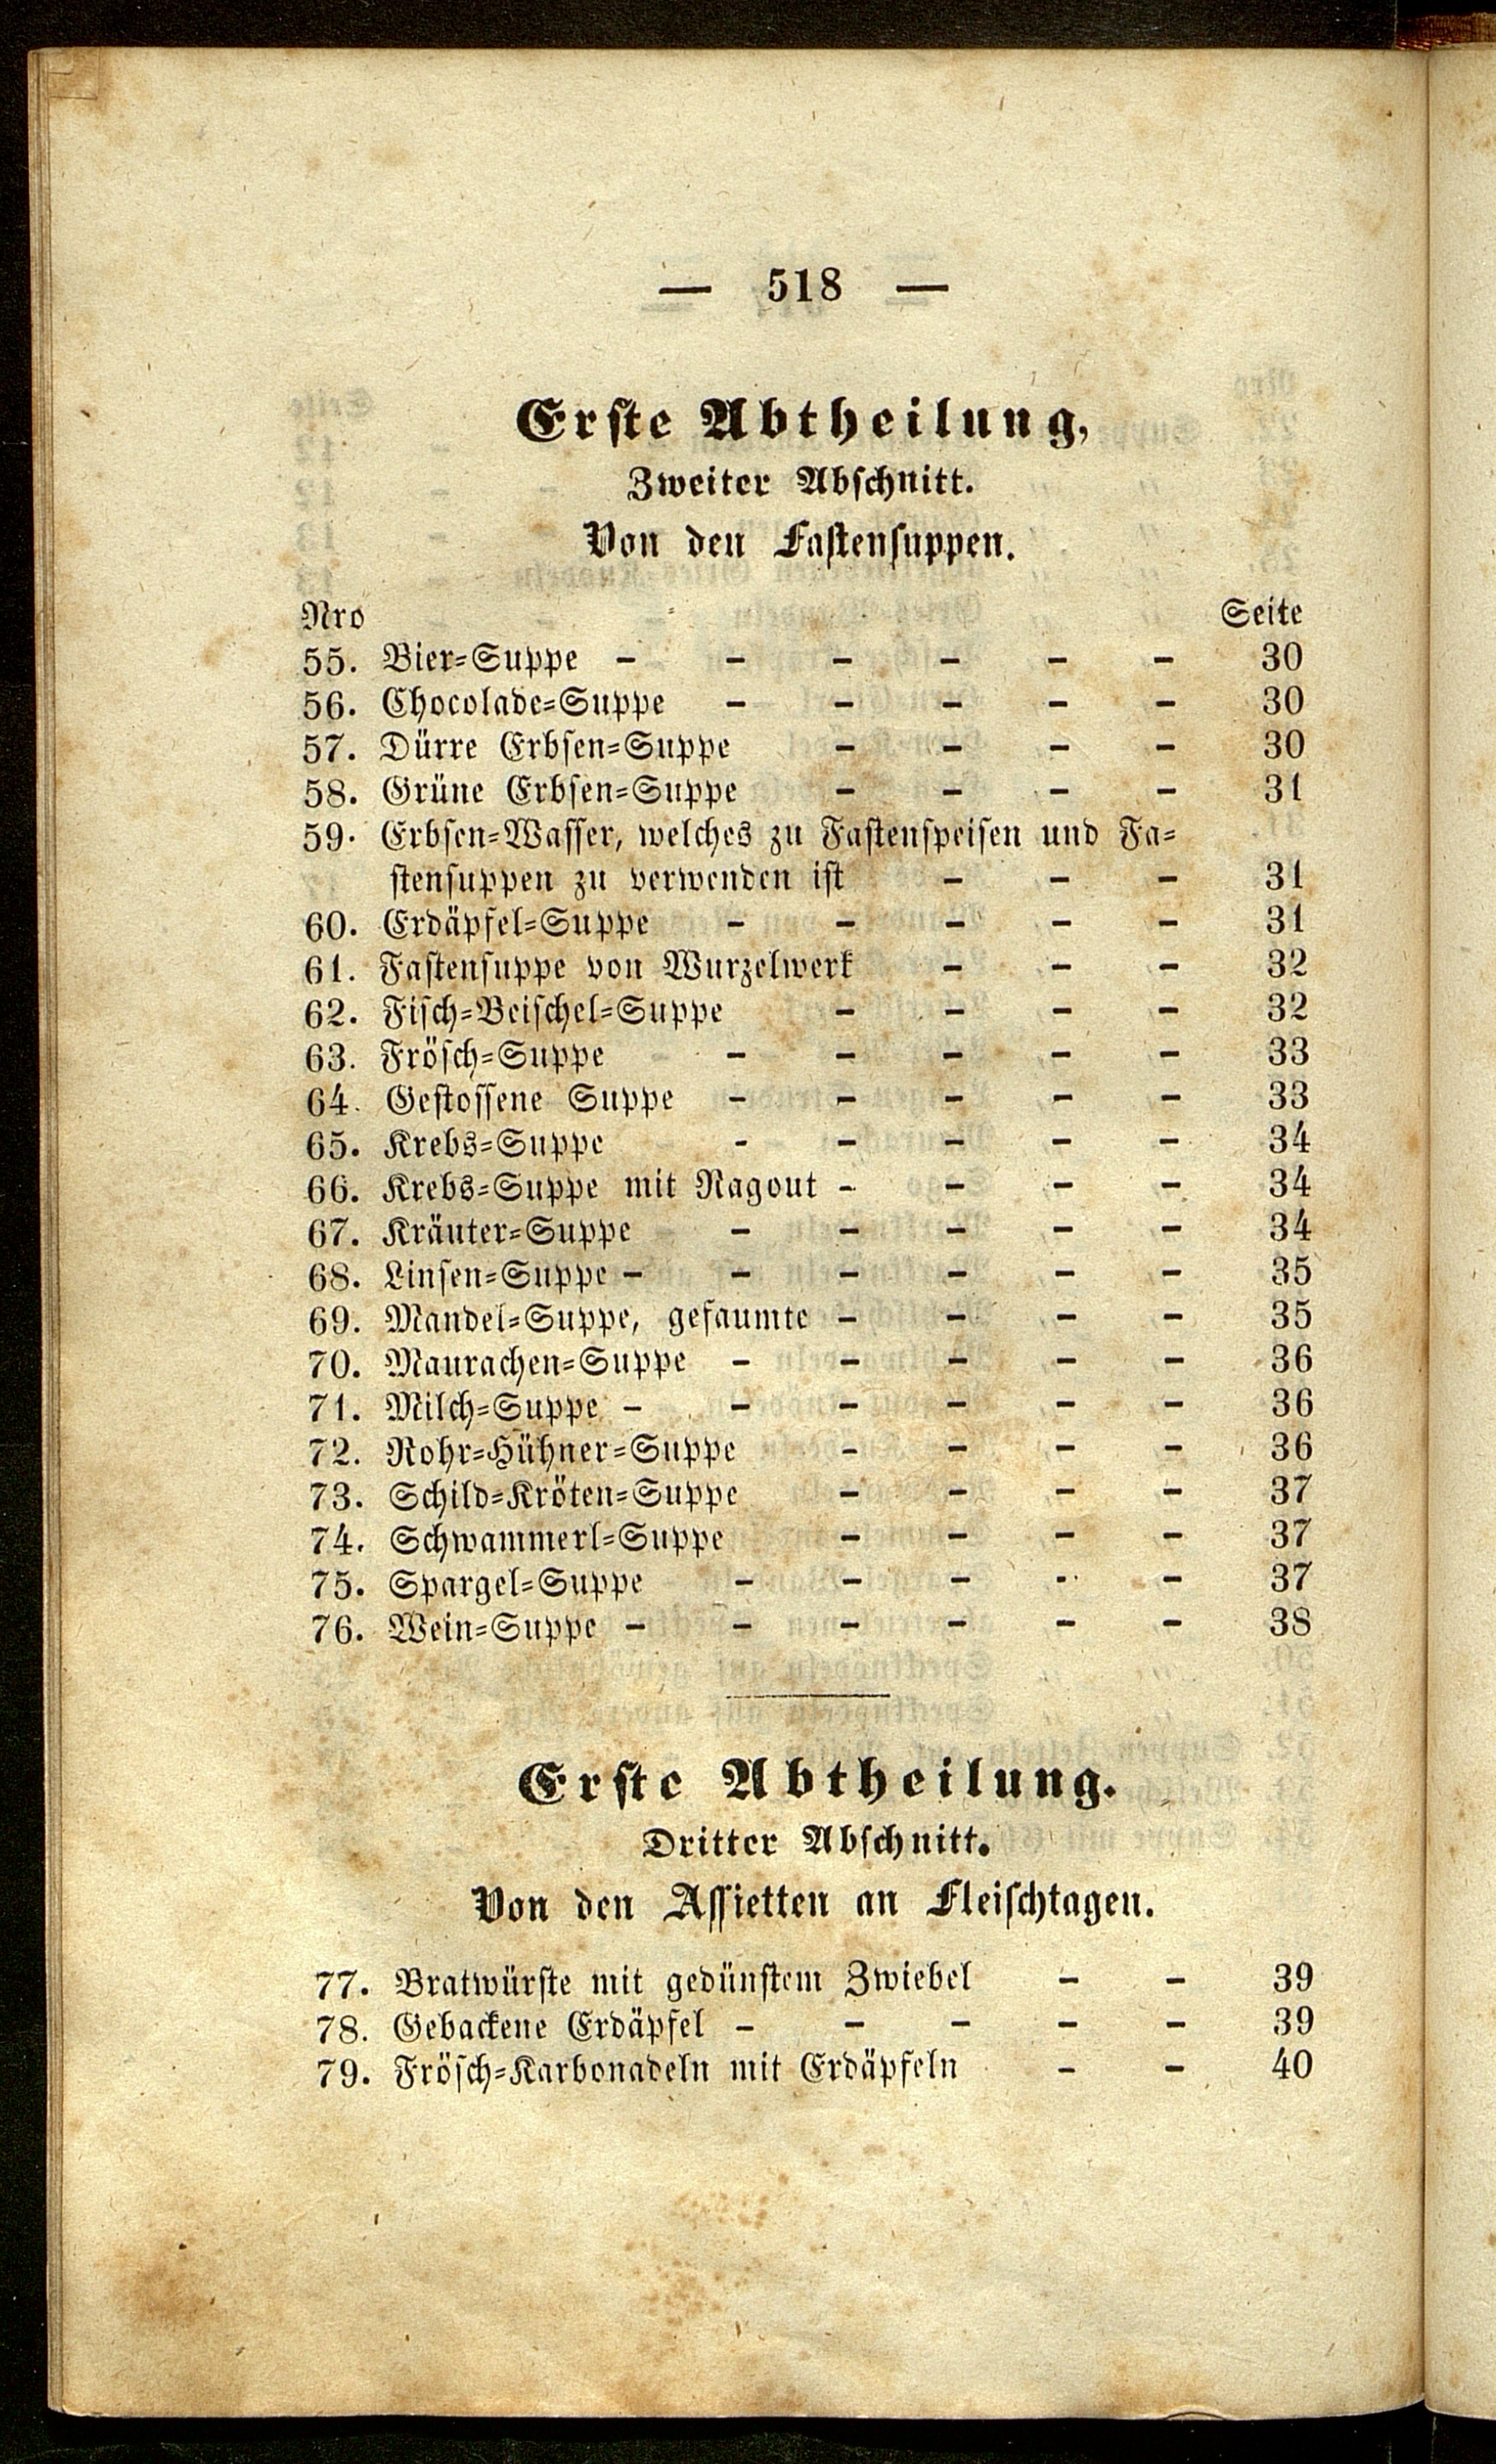 — 518 —
Erste Abtheilung,
Zweiter Abschnitt.
Von den Fastensuppen.
Nro Seite
55. Bier=Suppe - - - - - - 30
56. Chocolade=Suppe - - - - - 30
57. Dürre Erbsen=Suppe - - - - 30
58. Grüne Erbsen=Suppe - - - - 31
59. Erbsen=Wasser, welches zu Fastenspeisen und Fa=
stensuppen zu verwenden ist - - - 31
60. Erdäpfel=Suppe - - - - - 31
61. Fastensuppe von Wurzelwerk - - - 32
62. Fisch=Beischel=Suppe - - - - 32
63. Frösch=Suppe - - - - - 33
64. Gestossene Suppe - - - - - 33
65. Krebs=Suppe - - - - - 34
66. Krebs=Suppe mit Ragout - - - - 34
67. Kräuter=Suppe - - - - - 34
68. Linsen=Suppe - - - - - - 35
69. Mandel=Suppe, gefaumte - - - - 35
70. Maurachen=Suppe - - - - - 36
71. Milch=Suppe - - - - - - 36
72. Rohr=Hühner=Suppe - - - - 36
73. Schild=Kröten=Suppe - - - - 37
74. Schwammerl=Suppe - - - - 37
75. Spargel=Suppe - - - - - 37
76. Wein=Suppe - - - - - - 38
Erste Abtheilung.
Dritter Abschnitt.
Von den Assietten an Fleischtagen.
77. Bratwürste mit gedünstem Zwiebel - - 39
78. Gebackene Erdäpfel - - - - - 39
79. Frösch=Karbonadeln mit Erdäpfeln - - 40